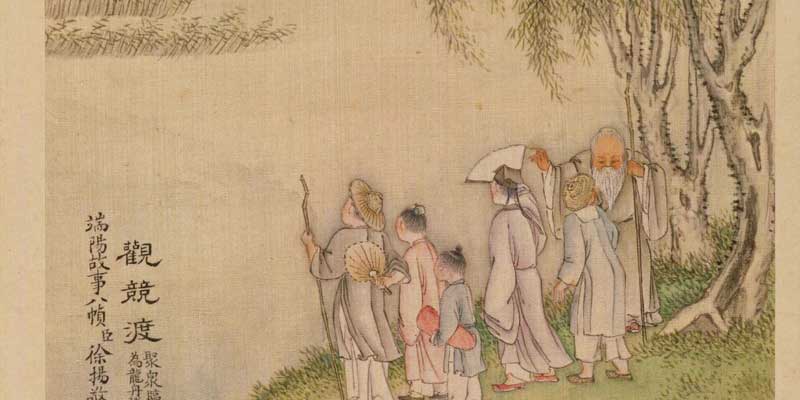 觀競渡
聚衆臨
為龍舟
端陽故事八幀臣徐揚敬